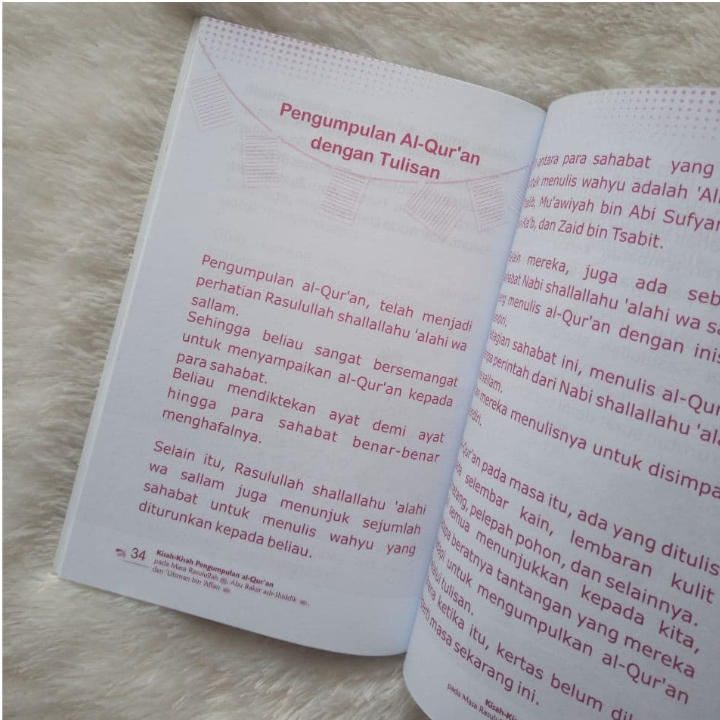 Pengumpulan Al-Qur'an
dengan Tulisan
Pengumpulan al-Qur'an, telah menjadi
perhatian Rasulullah shallallahu 'alahi wa
sallam.
Sehingga beliau sangat bersemangat
untuk menyampaikan al-Qur'an kepada
para sahabat.
Beliau mendiktekan ayat demi ayat
hingga para sahabat benar-benar
menghafalnya.
Selain itu, Rasulullah shallallahu 'alahi
wa sallam juga menunjuk sejumlah
sahabat untuk menulis wahyu yang
diturunkan kepada beliau.
34
Kisah-Kisah Pengumpulan al-Qur'an
pada Masa Rasulullah ﷺ, Abu Bakar ash-Shiddik
dan 'Utsman bin 'Affan
antara para sahabat yang
menulis wahyu adalah
Mu'awiyah bin Abi
dan Zaid bin Tsabit.
mereka, juga ada
Nabi shallallahu 'alahi wa
menulis al-Qur'an dengan
sahabat ini, menulis
perintah dari Nabi shallallahu
mereka menulisnya untuk
pada masa itu, ada yang ditulis
selembar kain, lembaran kulit
pelepah pohon, dan selainnya.
semua menunjukkan kepada kita,
beratnya tantangan yang mereka
untuk mengumpulkan al-Qur'an
tulisan.
ketika itu, kertas belum
masa sekarang ini.
pada Masa